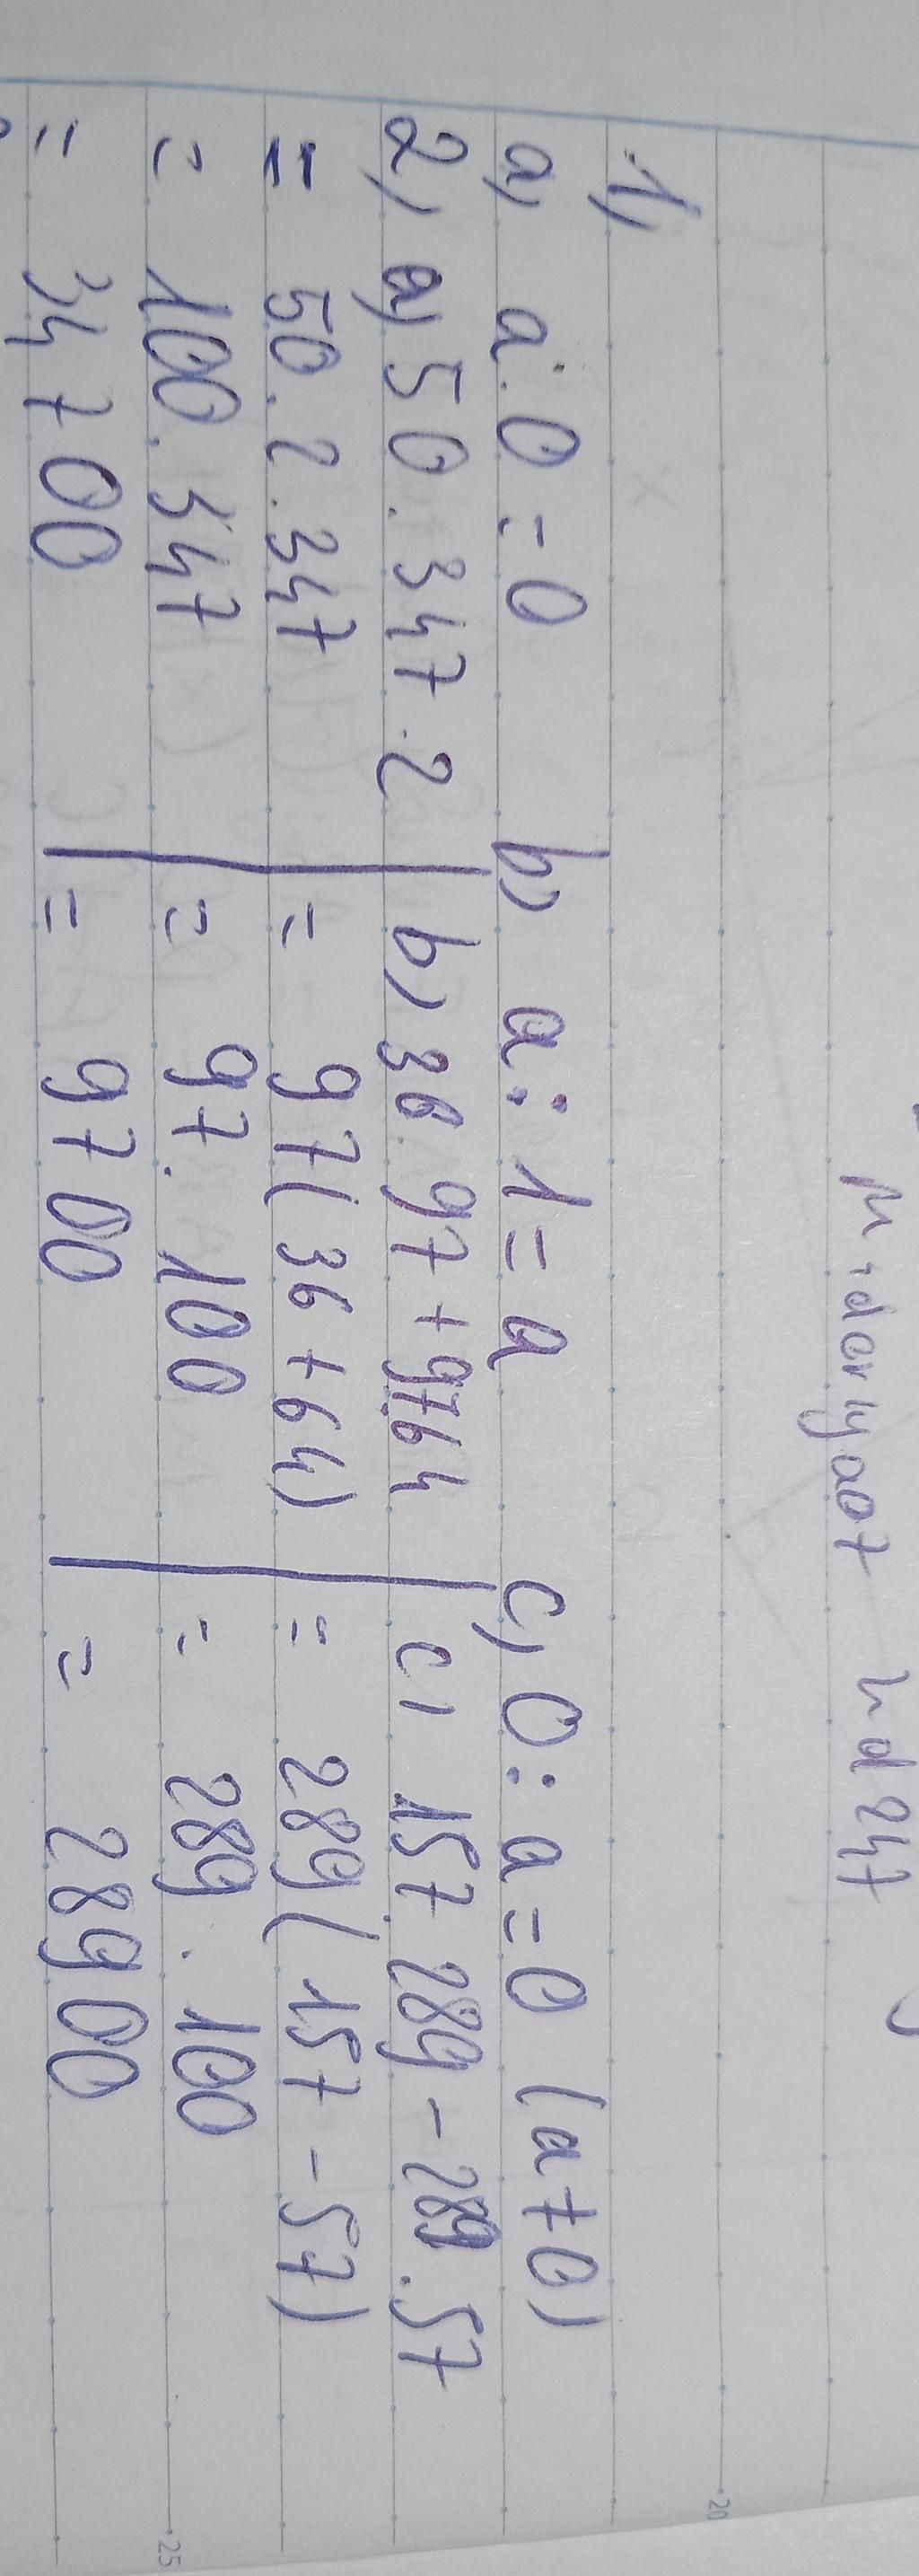 1)
a) a . 0 = 0 b) a : 1 = a c) 0 : a = 0 (a ≠ 0)
2) a) 50 . 347 . 2 b) 36 . 97 + 97.64 c) 157 . 289 - 289 . 57
= 50 . 2 . 347 = 97 ( 36 + 64 ) = 289 ( 157 - 57 )
= 100 . 347 = 97 . 100 = 289 . 100
= 34 700 = 9700 = 28900
20
25